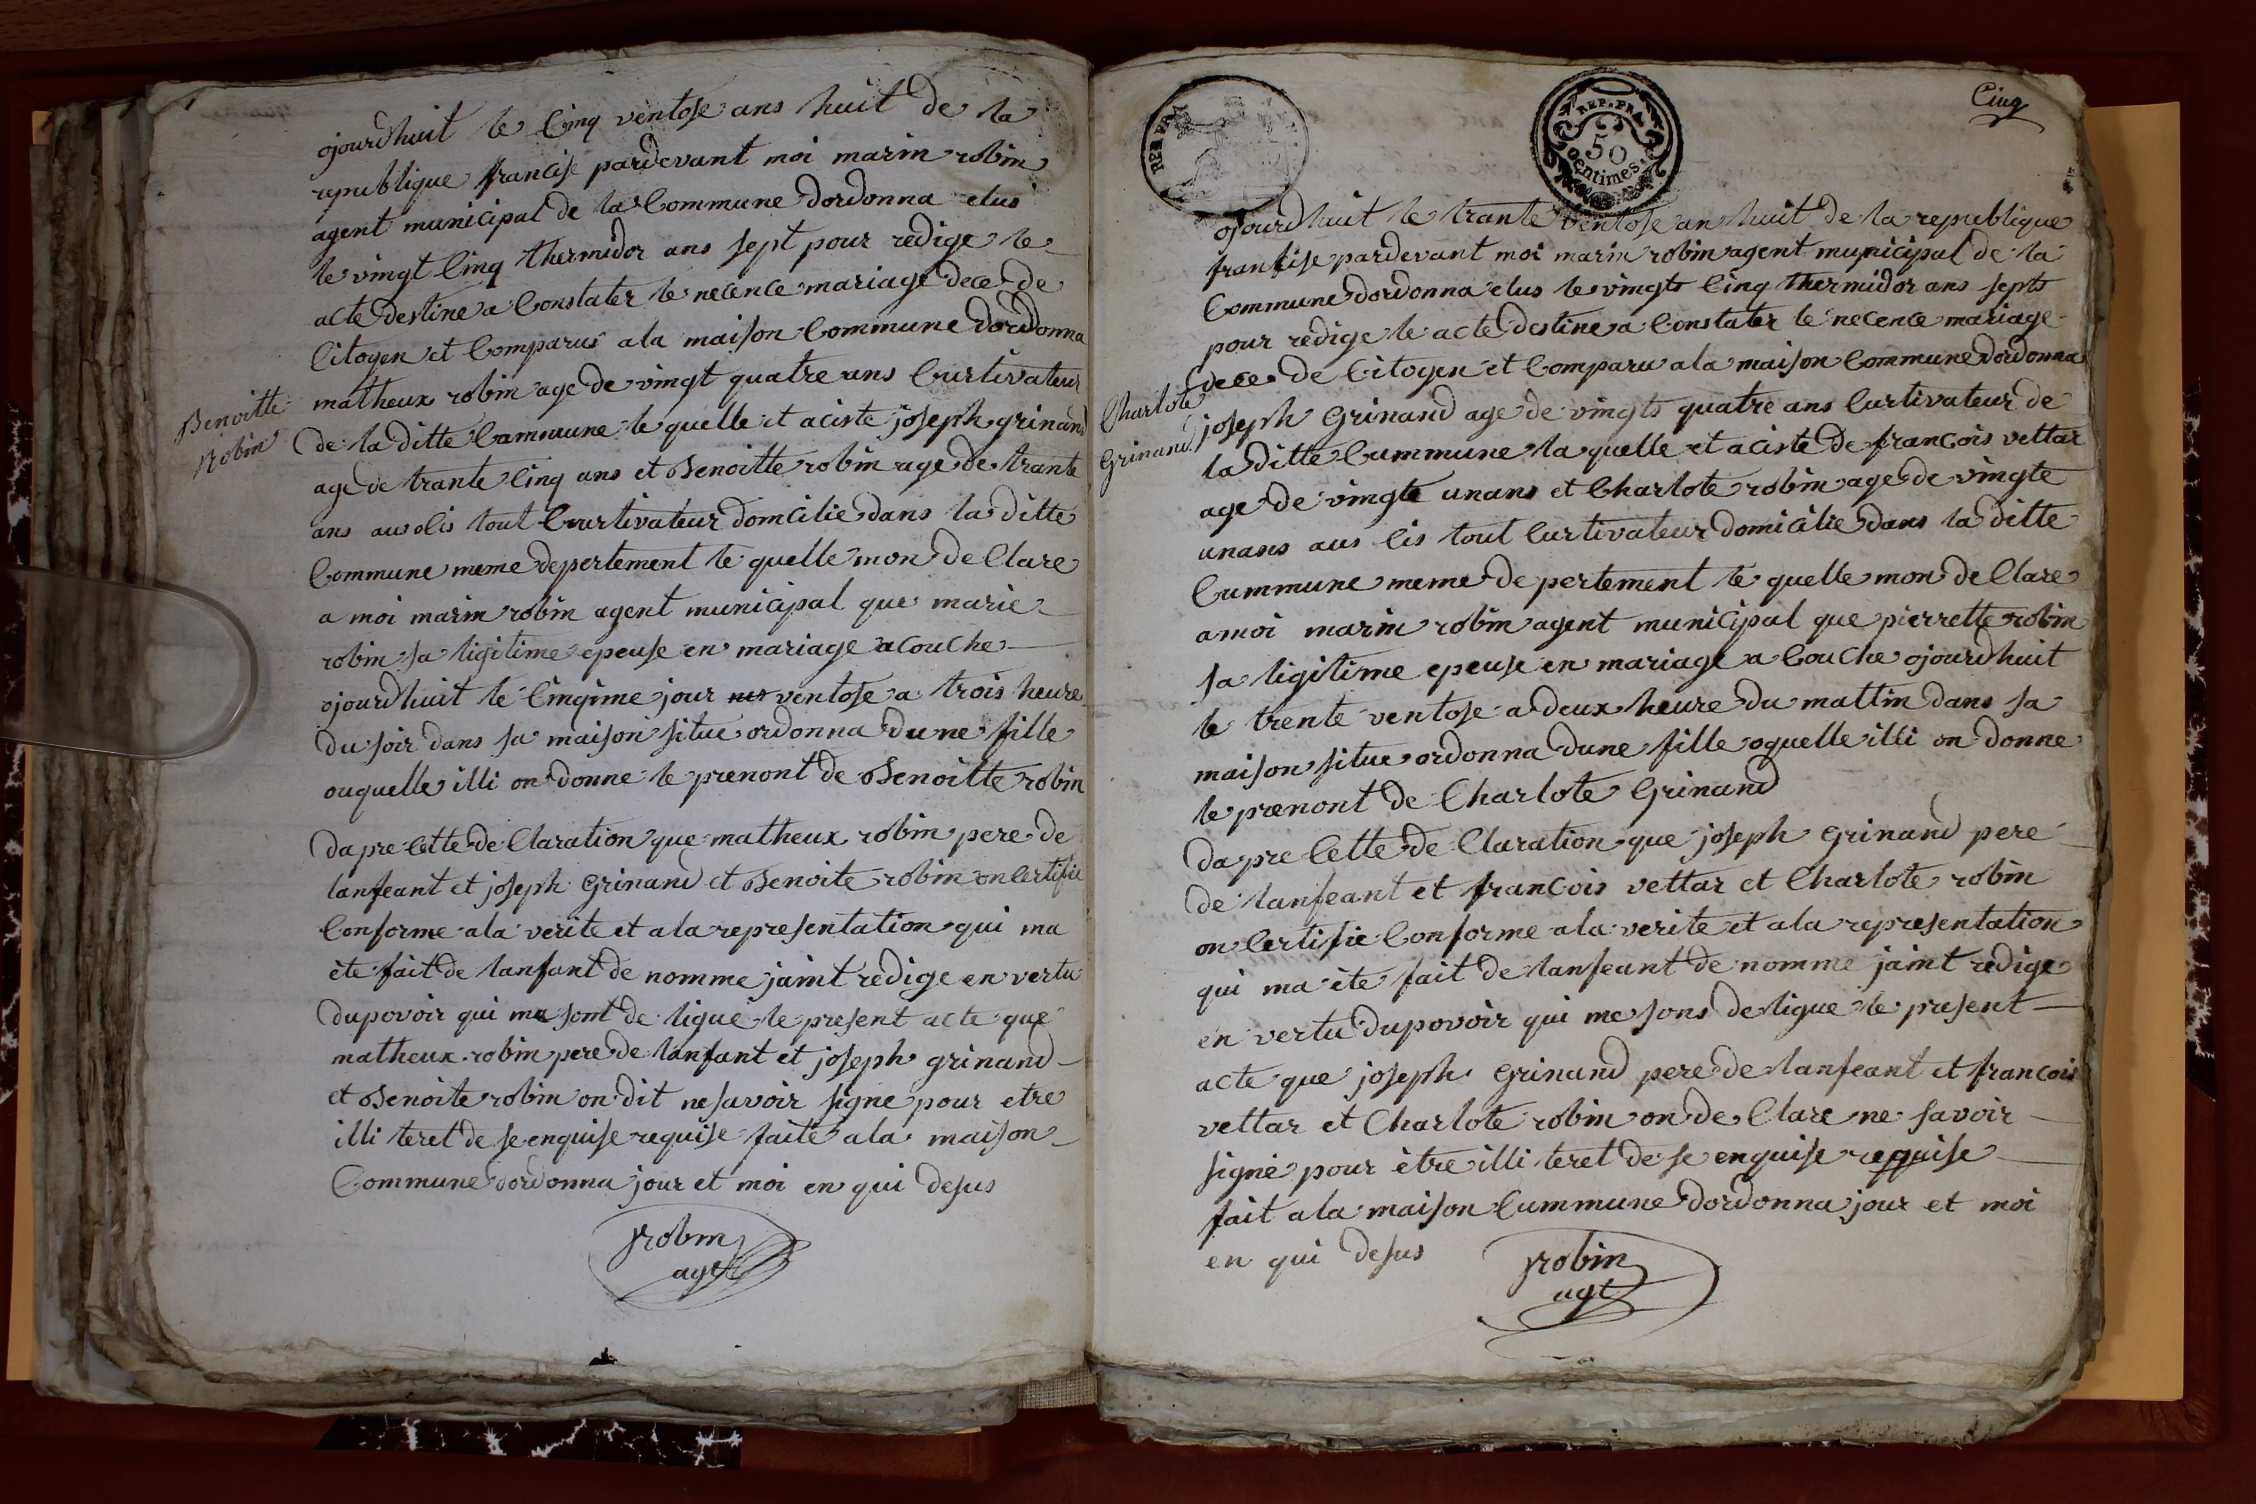 ojourdhuit le Cinq ventose ans huit de la
republique francise pardevant moi marin robin
agent municipal de la Commune dordonna elus
le vingt Cinq thermidor ans sept pour redige le
acte destine a Constater le necence mariage dece de
Citoyen et Comparus a la maison Commune dordonna
matheux robin age de vingt quatre ans Curtivateur
de la ditte Commune le quelle et aciste joseph grinand
age de trante Cinq ans et Benoitte robin age de trante
ans au olis tout Curtivateur domcilie dans la ditte
Commune meme depertement le quelle mon de Clare
a moi marin robin agent municipal que marie
robin sa ligitime epeuse en mariage a couche
ojourdhuit le Cinqime jour ventose a trois heure
du soir dans sa maison situe ordonna dune fille
ouquelle illi on donne le prenont de Benoitte robin
dapre Cette de Claration que matheux robin pere de
lanfeant et joseph Grinand et Benoite robin on Certifie
Conforme a la verite et a la representation qui ma
ète fait de lanfant de nomme jaint redige en vertu
du povoir qui me sont de ligue le present acte que
matheux robin pere de lanfant et joseph grinand
et Benoite robin on dit ne savoir signe pour etre
illi teret de se enquise requise faite a la maison
Commune dordonna jour et moi en qui desus
robin
agt
Benoitte
robin
REP. FRA.
REP. FRA.
50
centimes.
Cinq
ojourdhuit le trante ventose an huit de la republique
franfise pardevant moi marin robin agent municipal de la
Commune dordonna elus le vingt Cinq thermidor ans sept
pour redige le acte destine a Constater le necence mariage
dece de Citoyen et Comparu a la maison Commune dordonna
joseph Grinand age de vingts quatre ans Curtivateur de
la ditte Cummune la quelle et aciste de francois vettar
age de vingte unans et Charlote robin age de vingte
unans aus lis tout Curtivateur domicilie dans la ditte
Cummune meme de pertement le quelle mon de Clare
a moi marin robin agent municipal que pierrette robin
sa ligitime epeuse en mariage a Couche ojourdhuit
le trente ventose a deux heure du mattin dans sa
maison situe ordonna dune fille oquelle illi on donne
le prenont de Charlote Grinand
dapre Cette de Claration que joseph grinand pere
de lanfeant et francois vettar et Charlote robin
on Certifie Conforme a la verite et a la representation
qui ma ète fait de lanfeant de nomme jaint redige
en vertu du povoir qui me sons de ligue le present
acte que joseph grinand pere de lanfeant et francois
vettar et Charlote robin on de Clare ne savoir
signe pour ètre illi teret de se enquise requise
fait a la maison Cummune dordonna jour et moi
en qui desus
robin
agt
Charlote
Grinand